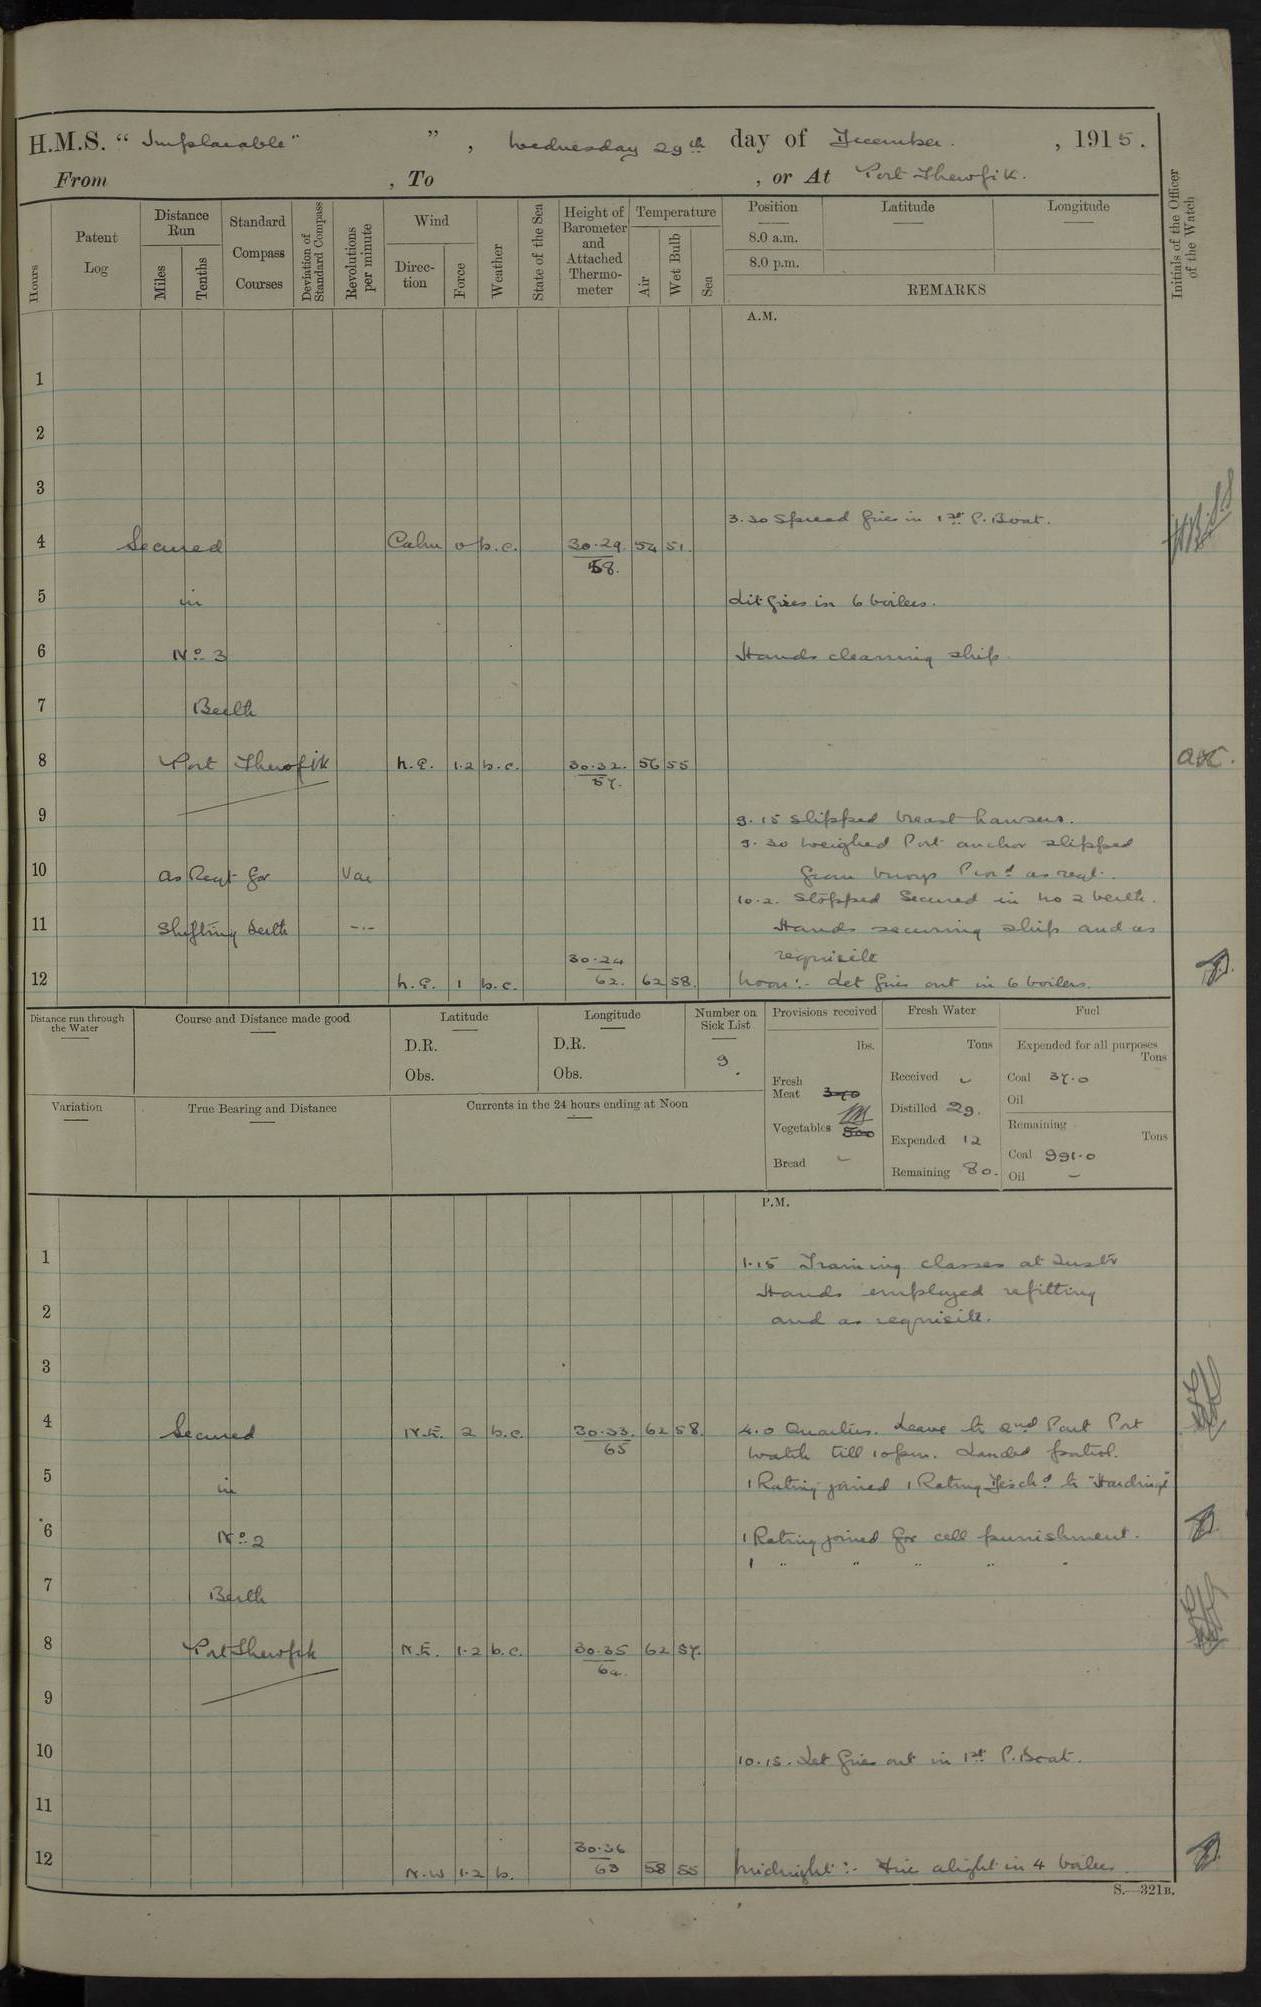 H.M.S. “ Implacable” ” , Wednesday 29th day of December. , 1915.
From , To , or At Port Thewfik.
Hours
Patent Log
Distance Run
Miles
Tenths
Standard Compass Courses
Deviation of Standard Compass
Revolutions per minute
Wind
Direction
Force
Weather
State of the Sea
Height of Barometer and Attached Thermometer
Temperature
Air
Wet Bulb
Sea
Position
8.0 a.m.
8.0 p.m.
Latitude
Longitude
REMARKS
Initials of the Officer of the Watch
A.M.
1
2
3
3.30 Spread fires in 1st P. Boat.
4 Secured Calm 0 b.c. 30.29. 54 51.
58.
5 in Lit fires in 6 boilers.
6 No 3 Hands cleaning ship
7 Berth
8 Port Thewfik N.E. 1.2 b.c. 30.32. 56 55
57.
9 9.15 Slipped breast hawsers.
9.30 Weighed Port anchor slipped
10 as Reqt for Var from buoys Procd as reqt.
10.2. Stopped Secured in No 2 berth.
11 Shifting berth -.- Hands securing ship and as
requisite
30.24
12 N.E. 1 b.c. 62. 62 58. Noon:- Let fires out in 6 boilers.
Distance run through the Water
Course and Distance made good
Latitude
D.R.
Obs.
Longitude
D.R.
Obs.
Number on Sick List
9
Provisions received
lbs.
Fresh Meat 370
Vegetables 500
Bread -
Fresh Water
Tons
Received -
Distilled 29.
Expended 12
Remaining 80.
Fuel
Expended for all purposes
Tons
Coal 37.0
Oil
Remaining
Tons
Coal 991.0
Oil -
Variation
True Bearing and Distance
Currents in the 24 hours ending at Noon
P.M.
1 1.15 Training classes at Instn
Hands employed refitting
2 and as requisite.
3
4 Secured N.E. 2 b.c. 30.33. 62 58. 4.0 Quarters. Leave to 2nd Part Port
65 Watch till 10 pm. Landed patrol.
5 in 1 Rating joined 1 Rating Disch'd to "Hardinge"
6 No 2 1 Rating joined for cell punishment.
1 " " " " "
7 Berth
8 Port Thewfik N.E. 1.2 b.c. 30.35 62 57.
64.
9
10 10.15. Let fires out in 1st P. Boat.
11
30.36
12 N.W 1.2 b. 63 58 55 Midnight:- Fires alight in 4 boilers.
S.—321B.